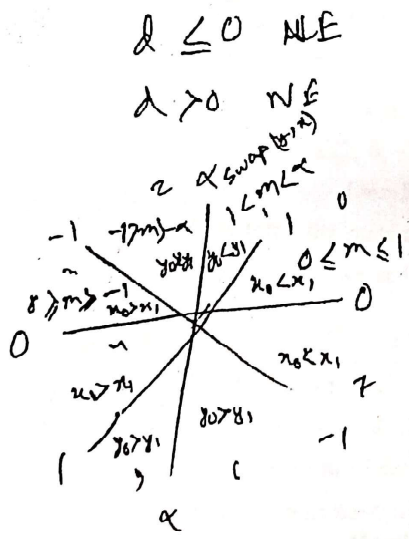 d ≤ 0 NE
d > 0 NE
2 α swap(y,x)
1 < m < α
-1 -1>m>-α 1 0
y0<y1 0 ≤ m ≤ 1
x0<x1
≥m≥-1
x0>x1 0
0
x0<x1
x0>x1 7
y0>y1 y0>y1 -1
1
α